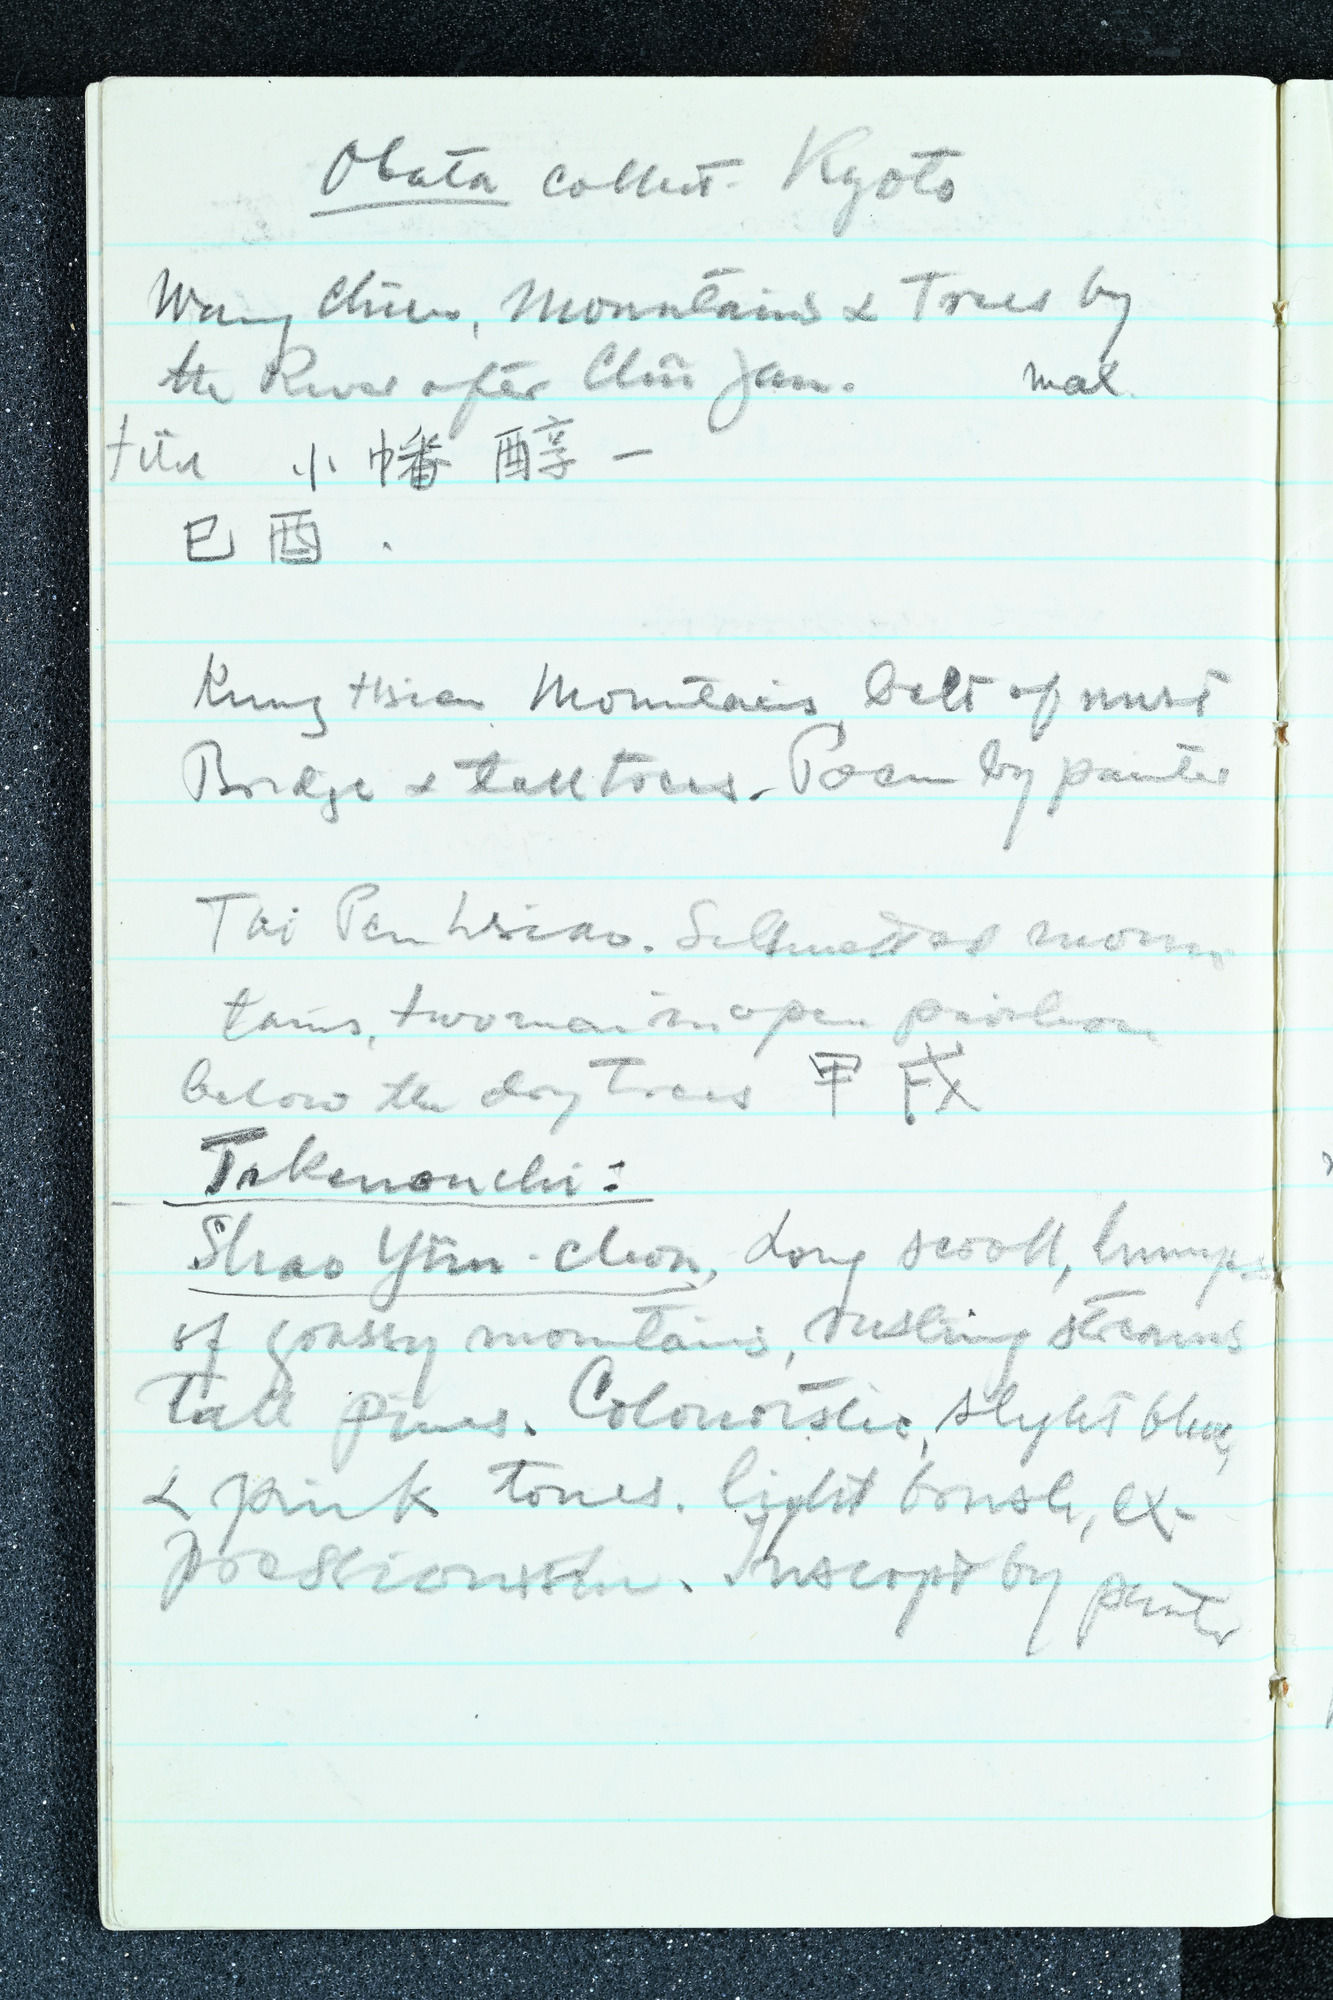 Obata collect. Kyoto
Wang Chien, Mountains & Trees by
the River after Chü Jan. mal.
für 小幡 醇一
己酉.
Kung Hsien Mountains, belt of mist
Bridge & tall trees. Poem by painter
Tai Pen hsiao. Silhuetted moun-
tains, two men in open pavilion
below the dry trees 甲 戌
Takenouchi:
Shao Yün-chon, Long scroll, humps
of grassy mountains, rushing streams
tall pines. Colouristic, slight blue,
& pink tones. light brush, ex-
pressionistic. Inscript by painter